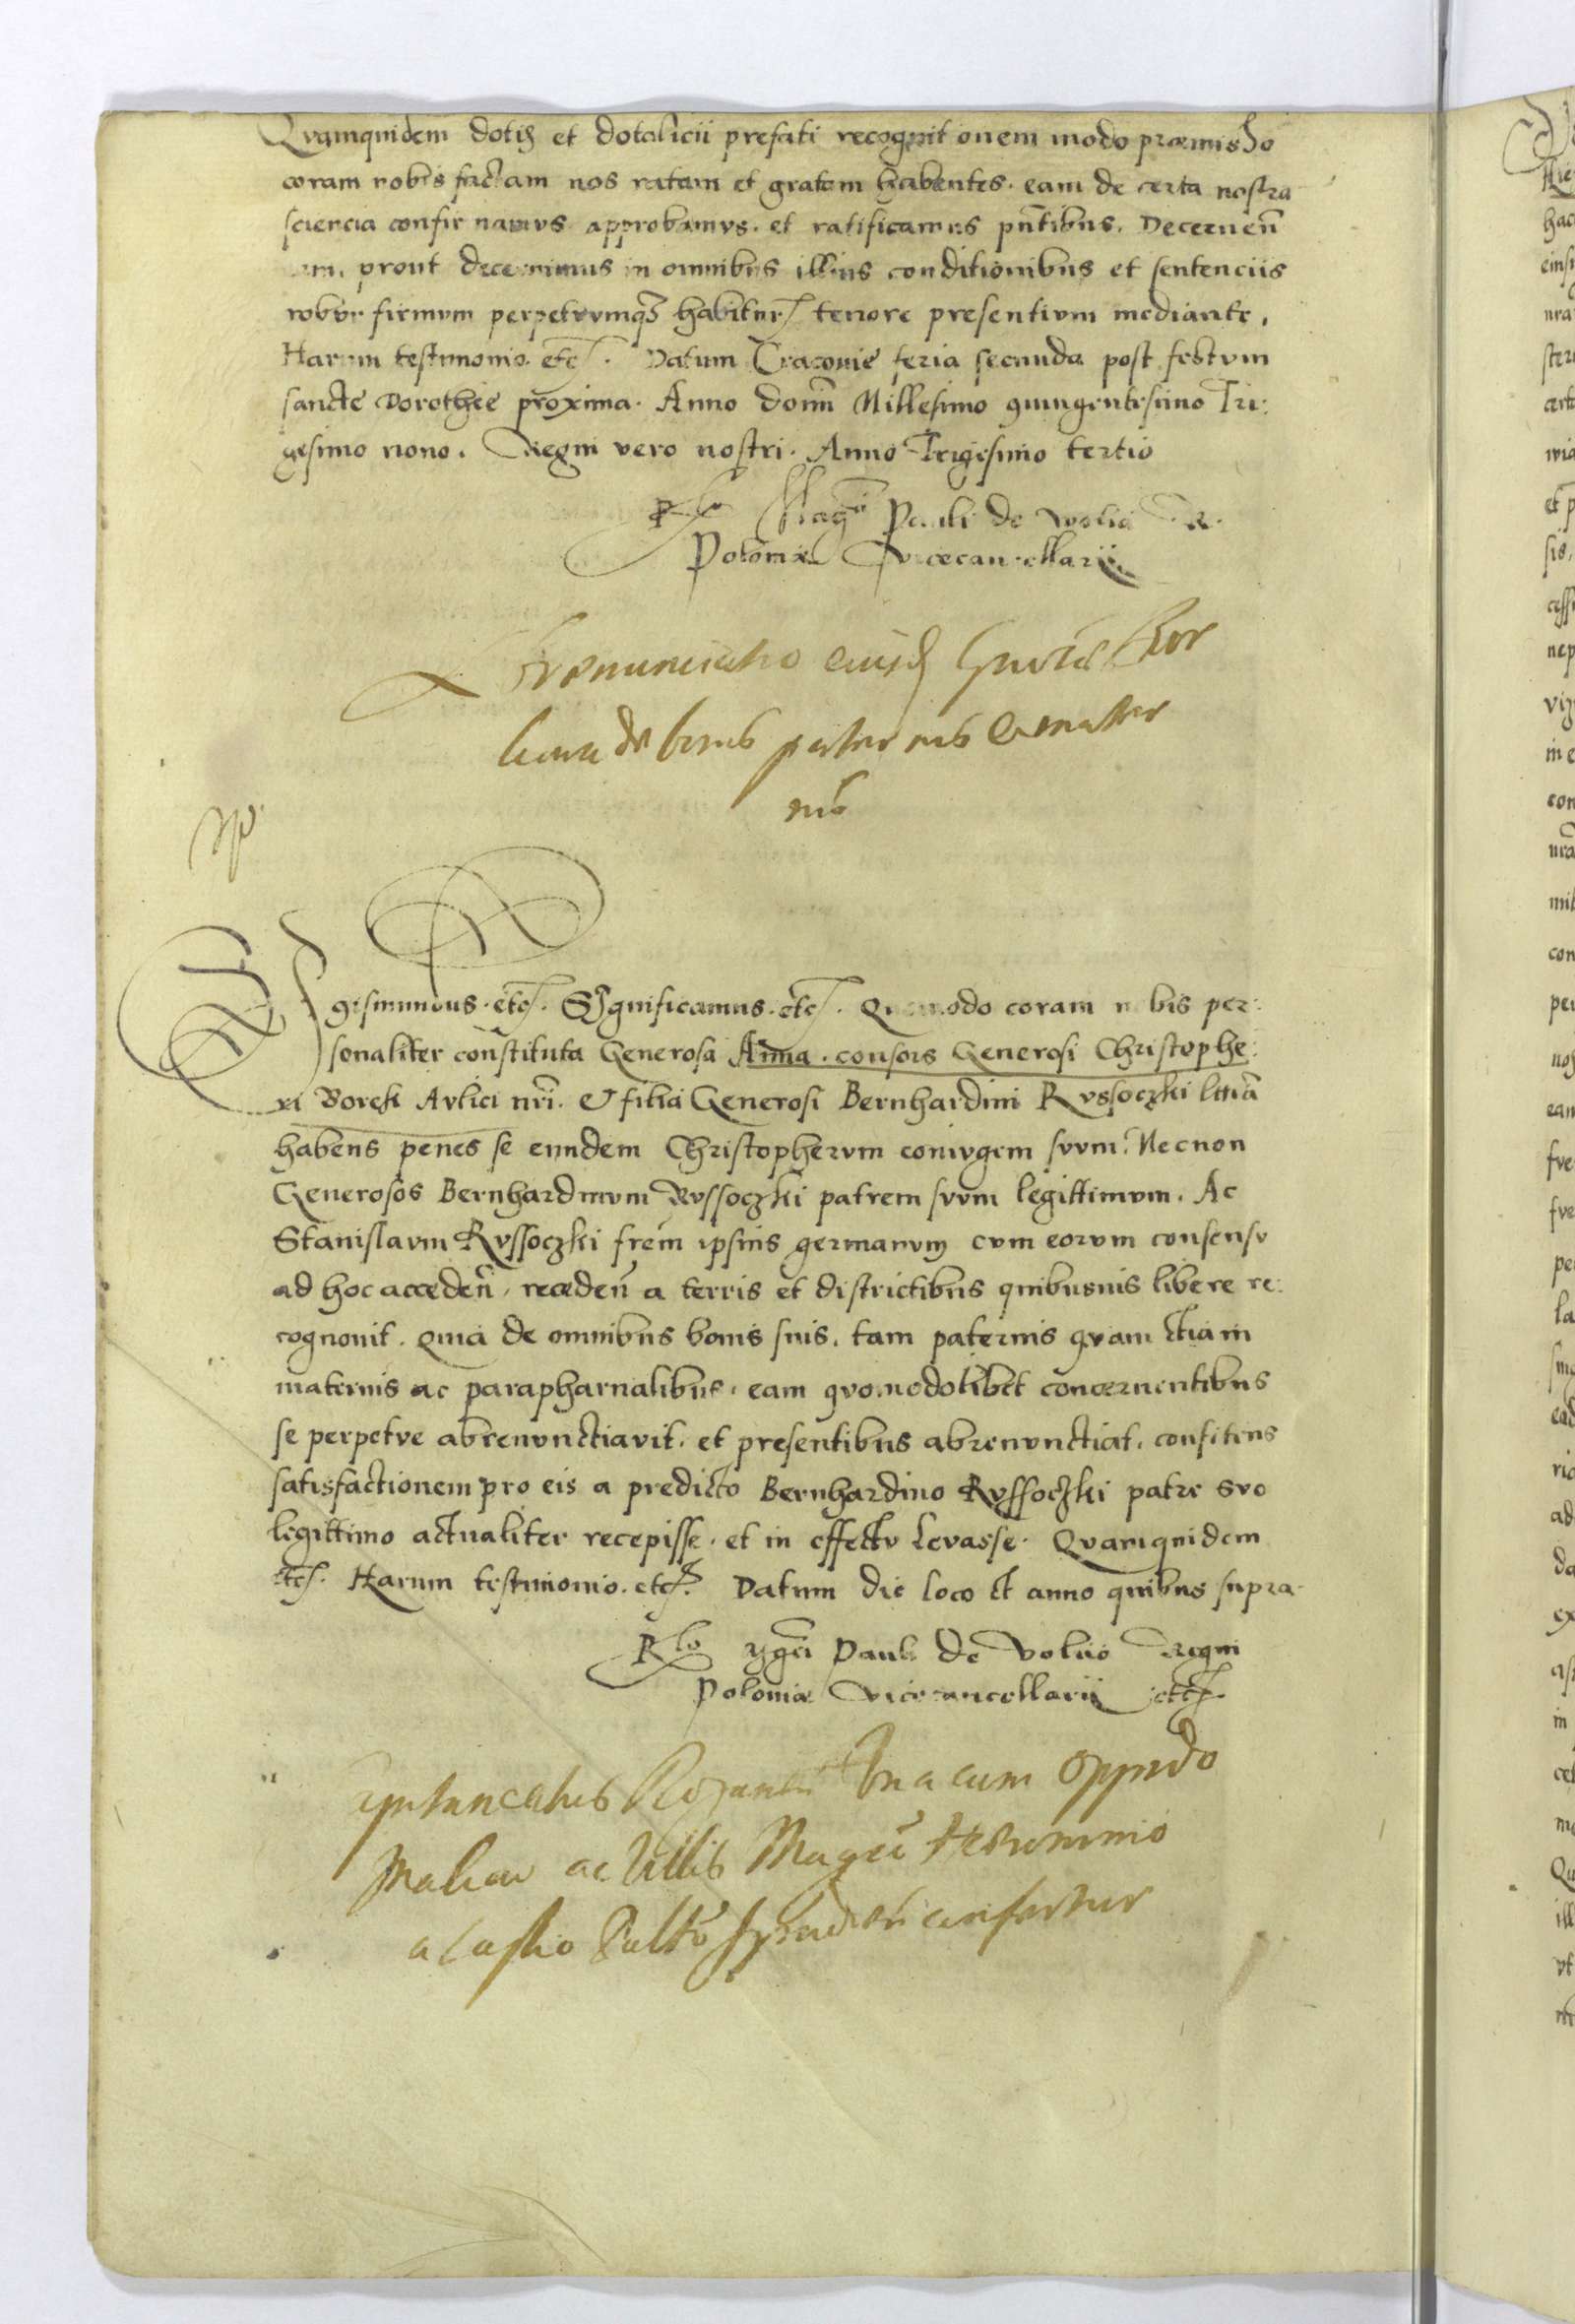 Qvamquidem dotis et dotalicii prefati recognitionem modo præmisso
coram nobis factam nos ratam et gratam habentes. eam de certa nostra
sciencia confirmamvs approbamvs. et ratificamus pñtibus. Decerneñ
prout decernimus in omnibus illius conditionibus et sentenciis
robvr firmvm perpetvvmq3 habitur tenore presentivm mediante.
Harum testimonio. etc. Datum Cracovie feria secunda post festvm
sancte Dorothee proxima. Anno domi Millesimo quingentesimo Tri:
gesimo nono. Regni vero nostri. Anno Trigesimo tertio
Rlo Magci Pauli de Wolia R.
Poloniæ Vicecancellarii
Renunciatio eiusd
de bonis paternis et mater
nis
gismundus. etc. Significamus. etc. Quomodo coram nobis per:
sonaliter constituta Generosa Anna. consors Generosi Christophe:
ri Borek Avlici nri. et filia Generosi Bernhardini Rvssoczki
habens penes se eundem Christophervm conivgem svvm. Necnon
Generosos Bernhardinvm Rvssoczki patrem svvm legittimvm. Ac
Stanislavm Rvssoczki frem ipsius germanvm cvm eorvm consensv
ad hoc accedeñ, recedeñ a terris et districtibus quibusuis libere re:
cognouit. quia de omnibus bonis suis. tam paternis qvam etiam
maternis ac parapharnalibus. eam qvomodolibet concernentibus
se perpetve abrenvnctiavit. et presentibus abrenvnctiat. confitens
satisfactionem pro eis a predicto Bernhardino Rvssoczki patre svo
legittimo actualiter recepisse. et in effectv levasse. Qvamquidem
etc. Harum testimonio. etc. Datum die loco et anno quibus supra.
Rlo Mgci Pauli de Volia Regni
Poloniæ Vicecancellarii etc.
Capitaneatus una cum Oppido
ac villis
confertur